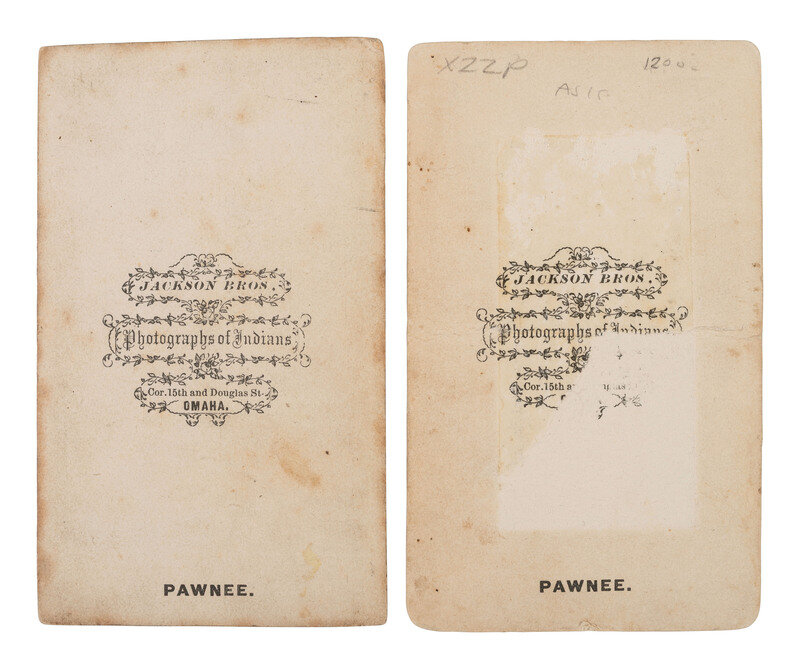 JACKSON BROS.
Photographs of Indians
Cor. 15th and Douglas St.
OMAHA.
PAWNEE.
XZZP
1200
JACKSON BROS.
Photographs of Indians
Cor. 15th
PAWNEE.